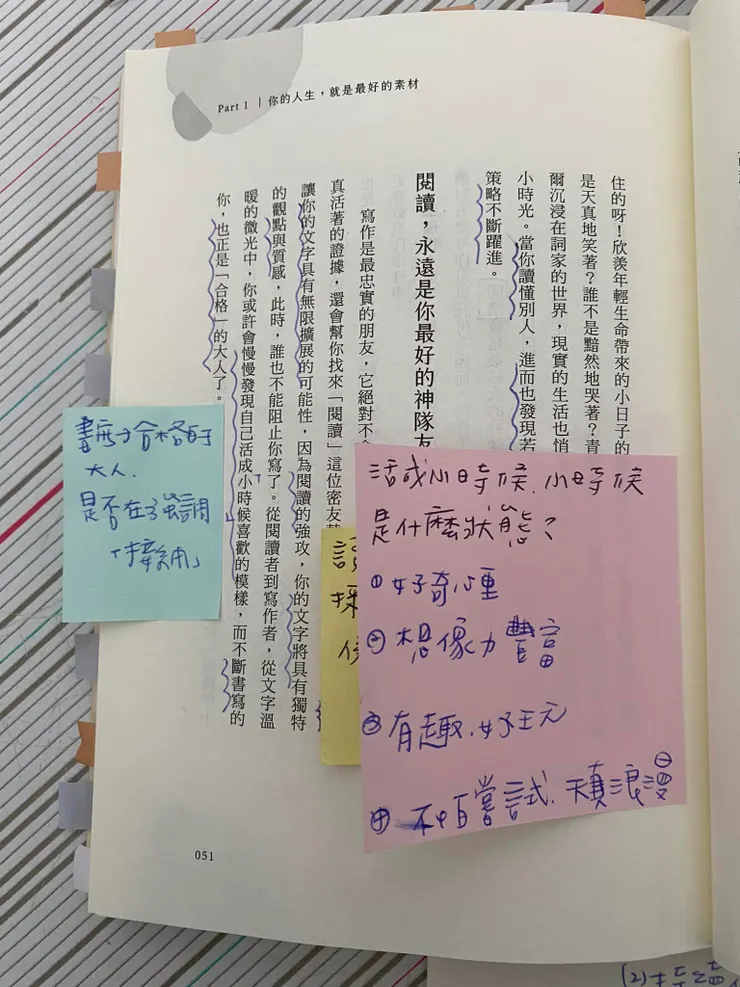 Part 1 | 你的人生，就是最好的素材
住的呀！欣羨年輕生命帶來的小日子的
是天真地笑著？誰不是黯然地哭著？青
爾沉浸在詞家的世界，現實的生活也悄
小時光。當你讀懂別人，進而也發現若
策略不斷躍進。
閱讀，永遠是你最好的神隊友
寫作是最忠實的朋友，它絕對不會
真活著的證據，還會幫你找來「閱讀」這位密友
讓你的文字具有無限擴展的可能性，因為閱讀的強攻，你的文字將具有獨特
的觀點與質感，此時，誰也不能阻止你寫了。從閱讀者到寫作者，從文字溫
暖的微光中，你或許會慢慢發現自己活成小時候喜歡的模樣，而不斷書寫的
你，也正是「合格」的大人了。
合格的
大人.
是否在強調
活成小時候.小時候
是什麼狀態？
①好奇心重
②想像力豐富
③有趣.好玩
④不怕嘗試.天真浪漫
051